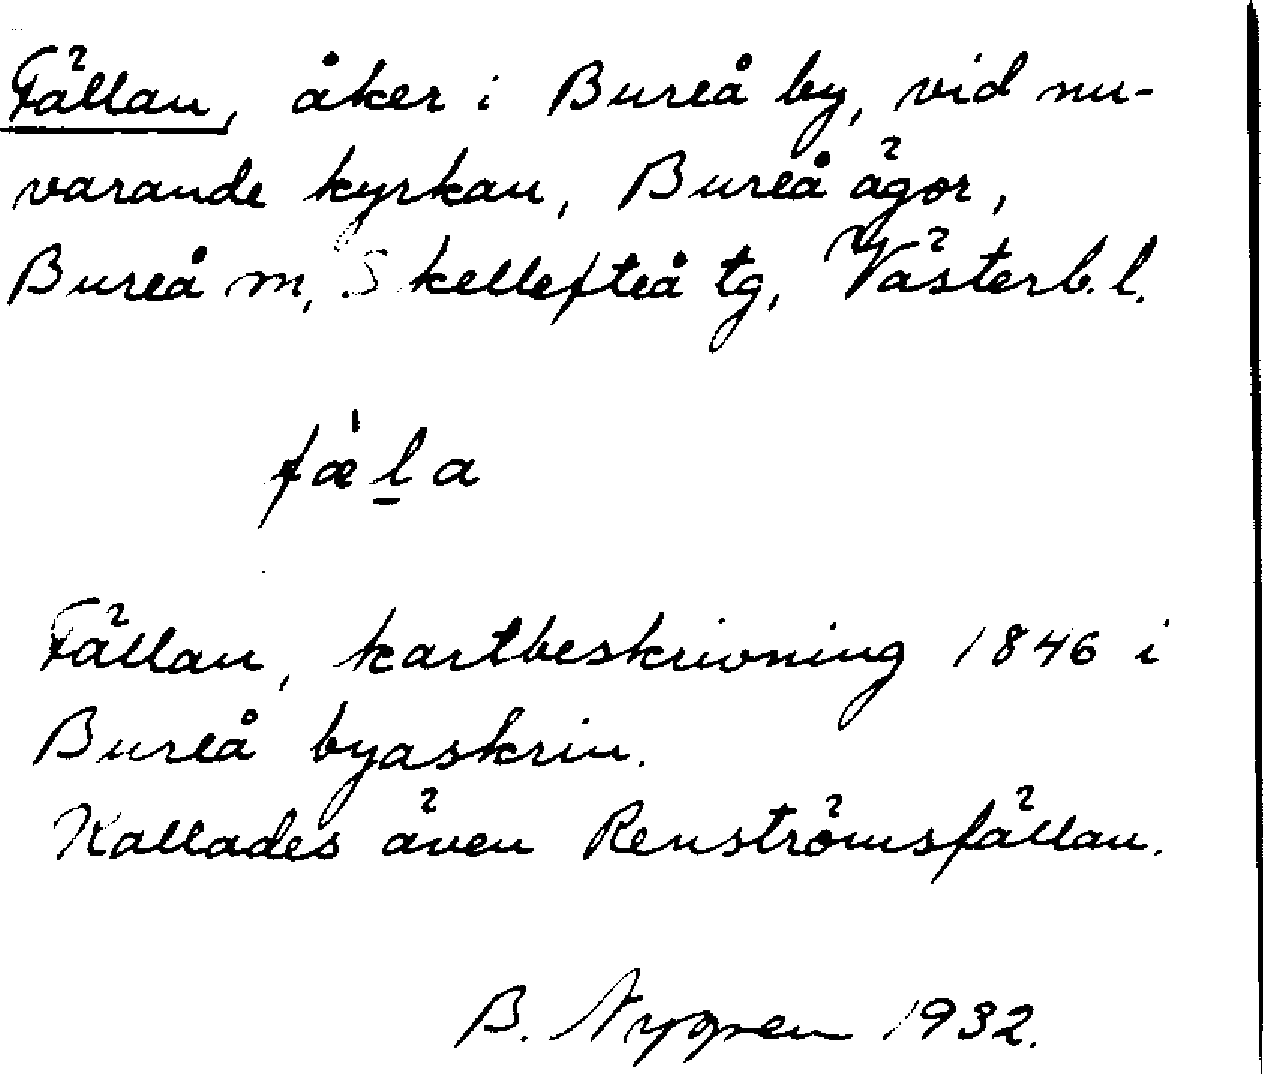 Fällan, åker i Bureå by, vid nu-
varande kyrkan, Bureå ägor,
Bureå m, Skellefteå tg, Västerb. l.
fæ̍l̲a
Fällan, kartbeskrivning 1846 i
Bureå byaskrin.
Kallades även Renströmsfällan.
B. Nygren 1932.